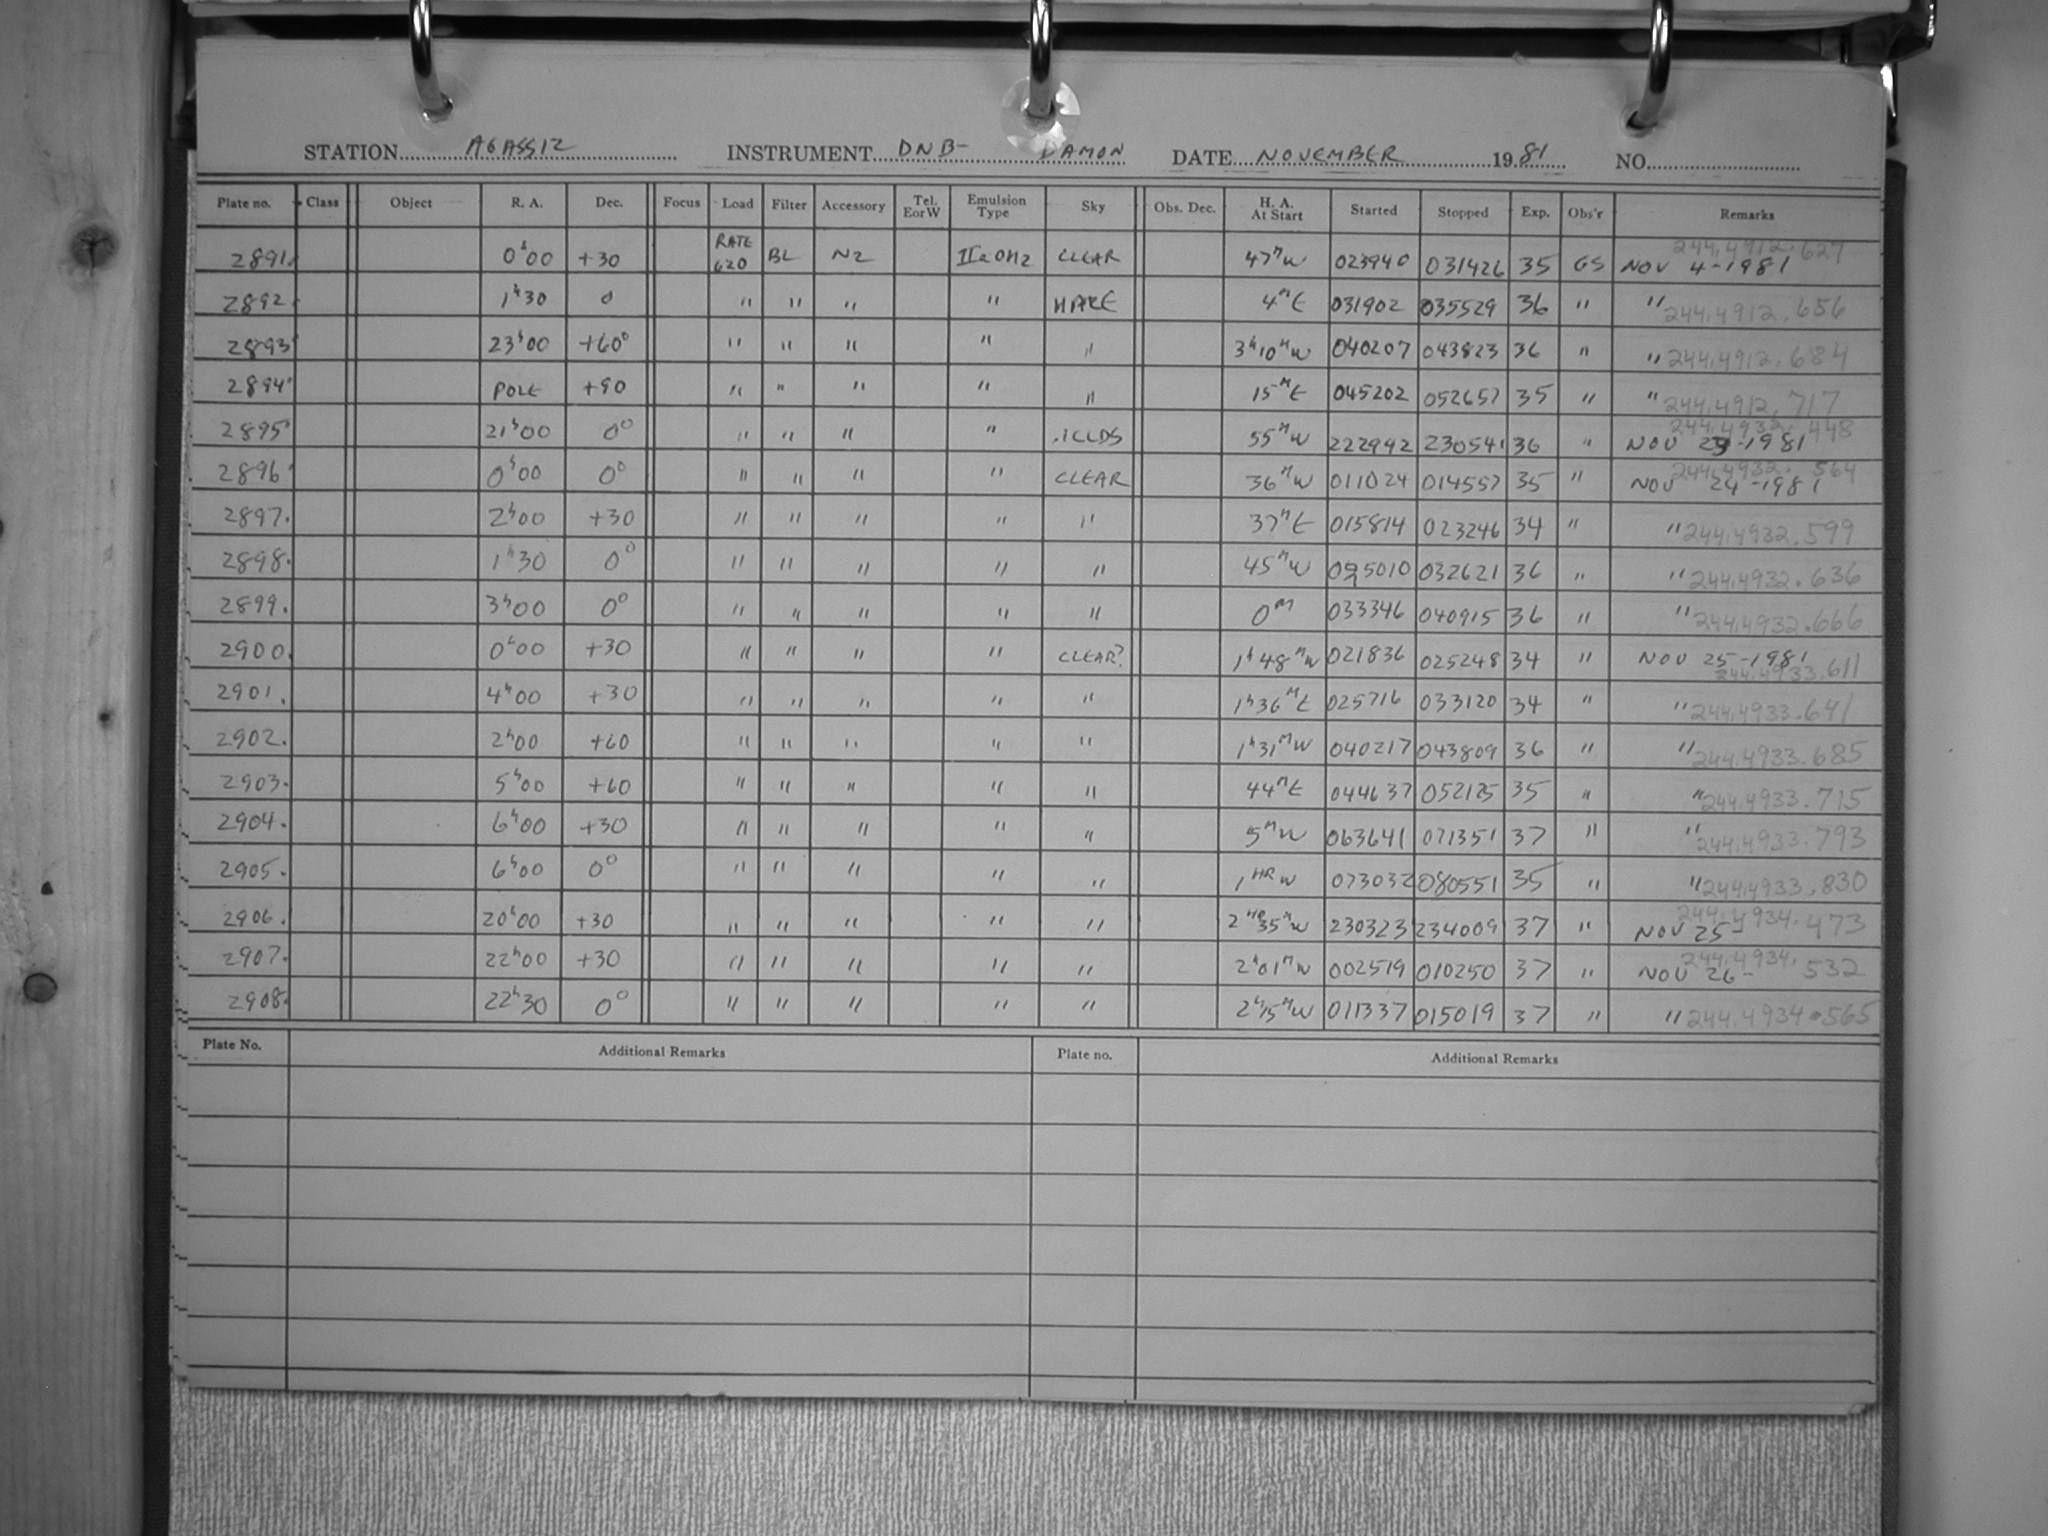 STATION AGASSIZ INSTRUMENT DNB- DAMON DATE NOVEMBER 1981 NO.
Plate no. Class Object R. A. Dec. Focus Load Filter Accessory Tel. E or W Emulsion Type Sky Obs. Dec. H. A. At Start Started Stopped Exp. Obs'r Remarks
2891 0h00 +30 RATE 620 BL N2 IIaOH2 CLEAR 47m W 023940 031426 35 GS NOV 4-1981 244,4912.627
2892 1h30 0 " " " " HAZE 4m E 031902 035529 36 " " 244,4912.656
2893 23h00 +60° " " " " " 3h10m W 040207 043823 36 " " 244,4912.684
2894 POLE +90 " " " " " 15m E 045202 052657 35 " " 244,4912.717
2895 21h00 0° " " " " .1CLDS 55m W 222942 230541 36 " NOV 23-1981 244,4932.448
2896 0h00 0° " " " " CLEAR 36m W 011024 014557 35 " NOV 24-1981 244,4932.564
2897 2h00 +30 " " " " " 37m E 015814 023246 34 " " 244,4932.599
2898 1h30 0° " " " " " 45m W 025010 032621 36 " " 244,4932.636
2899 3h00 0° " " " " " 0m 033346 040915 36 " " 244,4932.666
2900 0h00 +30 " " " " CLEAR? 1h48m W 021836 025248 34 " NOV 25-1981 244,4933.611
2901 4h00 +30 " " " " " 1h36m E 025716 033120 34 " " 244,4933.641
2902 2h00 +60 " " " " " 1h31m W 040217 043809 36 " " 244,4933.685
2903 5h00 +60 " " " " " 44m E 044637 052125 35 " " 244,4933.715
2904 6h00 +30 " " " " " 5m W 063641 071351 37 " " 244,4933.793
2905 6h00 0° " " " " " 1HR W 073032 080551 35 " " 244,4933.830
2906 20h00 +30 " " " " " 2HR35m W 230323 234009 37 " NOV 25- 244,4934.473
2907 22h00 +30 " " " " " 2h01m W 002519 010250 37 " NOV 26- 244,4934.532
2908 22h30 0° " " " " " 2h15m W 011337 015019 37 " " 244,4934.565
Plate No. Additional Remarks Plate no. Additional Remarks